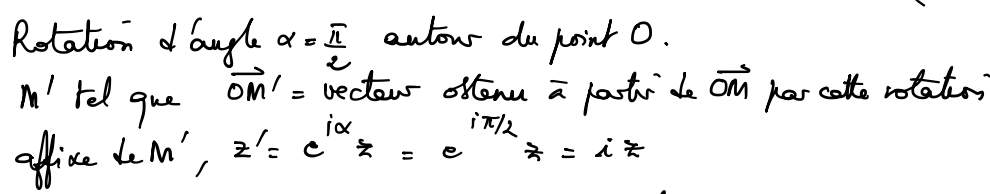 Rotation d'angle α = π/2 autour du point O.
M' tel que OM⃗' = vecteur obtenu à partir de OM⃗ par cette rotation
affixe de M', z' = e^{iα} z = e^{iπ/2} z = i z